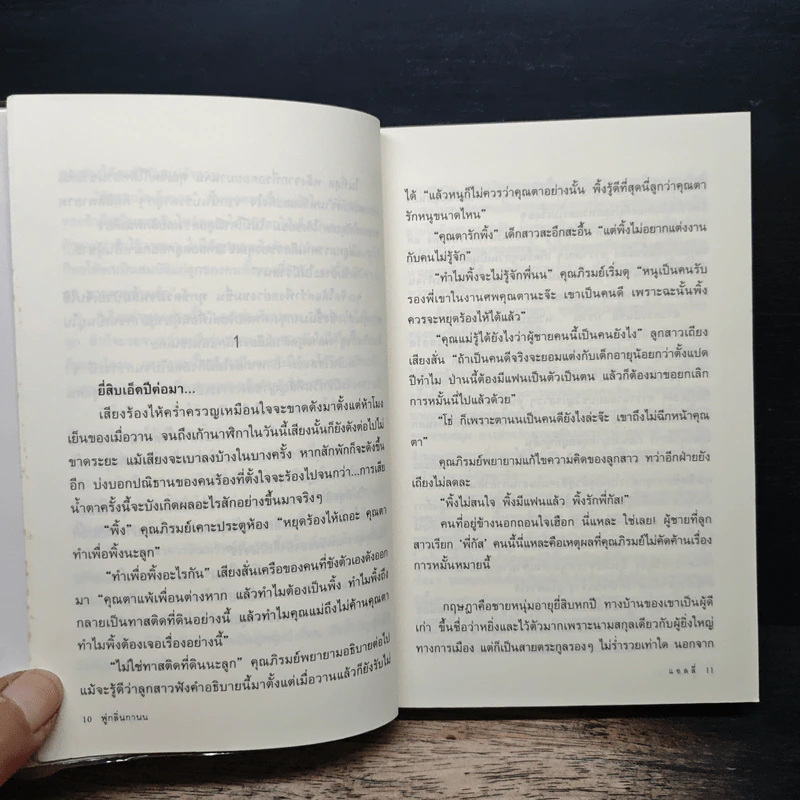 1
ยี่สิบเอ็ดปีต่อมา...
เสียงร้องไห้คร่ำครวญเหมือนใจจะขาดดังมาตั้งแต่ห้าโมง
เย็นของเมื่อวาน จนถึงเก้านาฬิกาในวันนี้เสียงนั้นก็ยังดังต่อไปไม่
ขาดระยะ แม้เสียงจะเบาลงบ้างในบางครั้ง หากสักพักก็จะดังขึ้น
อีก บ่งบอกปณิธานของคนร้องที่ตั้งใจจะร้องไปจนกว่า...การเสีย
น้ำตาครั้งนี้จะบังเกิดผลอะไรสักอย่างขึ้นมาจริงๆ
“พิ้ง” คุณภิรมย์เคาะประตูห้อง “หยุดร้องไห้เถอะ คุณตา
ทำเพื่อพิ้งนะลูก”
“ทำเพื่อพิ้งอะไรกัน” เสียงสั่นเครือของคนที่ขังตัวเองดังออก
มา “คุณตาแพ้เพื่อนต่างหาก แล้วทำไมต้องเป็นพิ้ง ทำไมพิ้งถึง
กลายเป็นทาสติดที่ดินอย่างนี้ แล้วทำไมคุณแม่ถึงไม่ค้านคุณตา
ทำไมพิ้งต้องเจอเรื่องอย่างนี้”
“ไม่ใช่ทาสติดที่ดินนะลูก” คุณภิรมย์พยายามอธิบายต่อไป
แม้จะรู้ดีว่าลูกสาวฟังคำอธิบายนี้มาตั้งแต่เมื่อวานแล้วก็ยังรับไม่
10 ฟูกลิ่นกานน
ได้ “แล้วหนูก็ไม่ควรว่าคุณตาอย่างนั้น พิ้งรู้ดีที่สุดนี่ลูกว่าคุณตา
รักหนูขนาดไหน”
“คุณตารักพิ้ง” เด็กสาวสะอึกสะอื้น “แต่พิ้งไม่อยากแต่งงาน
กับคนไม่รู้จัก”
“ทำไมพิ้งจะไม่รู้จักพี่นน” คุณภิรมย์เริ่มดุ “หนูเป็นคนรับ
รองพี่เขาในงานศพคุณตานะจ๊ะ เขาเป็นคนดี เพราะฉะนั้นพิ้ง
ควรจะหยุดร้องไห้ได้แล้ว”
“คุณแม่รู้ได้ยังไงว่าผู้ชายคนนี้เป็นคนยังไง” ลูกสาวเถียง
เสียงสั่น “ถ้าเป็นคนดีจริงจะยอมแต่งกับเด็กอายุน้อยกว่าตั้งแปด
ปีทำไม ป่านนี้ต้องมีแฟนเป็นตัวเป็นตน แล้วก็ต้องมาขอยกเลิก
การหมั้นนี้ไปแล้วด้วย”
“โธ่ ก็เพราะตานนเป็นคนดียังไงล่ะจ๊ะ เขาถึงไม่ฉีกหน้าคุณ
ตา”
คุณภิรมย์พยายามแก้ไขความคิดของลูกสาว ทว่าอีกฝ่ายยัง
เถียงไม่ลดละ
“พิ้งไม่สนใจ พิ้งมีแฟนแล้ว พิ้งรักพี่กัส!”
คนที่อยู่ข้างนอกถอนใจเฮือก นี่แหละ ใช่เลย! ผู้ชายที่ลูก
สาวเรียก ‘พี่กัส’ คนนี้นี่แหละคือเหตุผลที่คุณภิรมย์ไม่คัดค้านเรื่อง
การหมั้นหมายนี้
กฤษฎาคือชายหนุ่มอายุยี่สิบหกปี ทางบ้านของเขาเป็นผู้ดี
เก่า ขึ้นชื่อว่าหยิ่งและไว้ตัวมากเพราะนามสกุลเดียวกับผู้ยิ่งใหญ่
ทางการเมือง แต่ก็เป็นสายตระกูลรองๆ ไม่ร่ำรวยเท่าใด นอกจาก
แอลลี่ 11